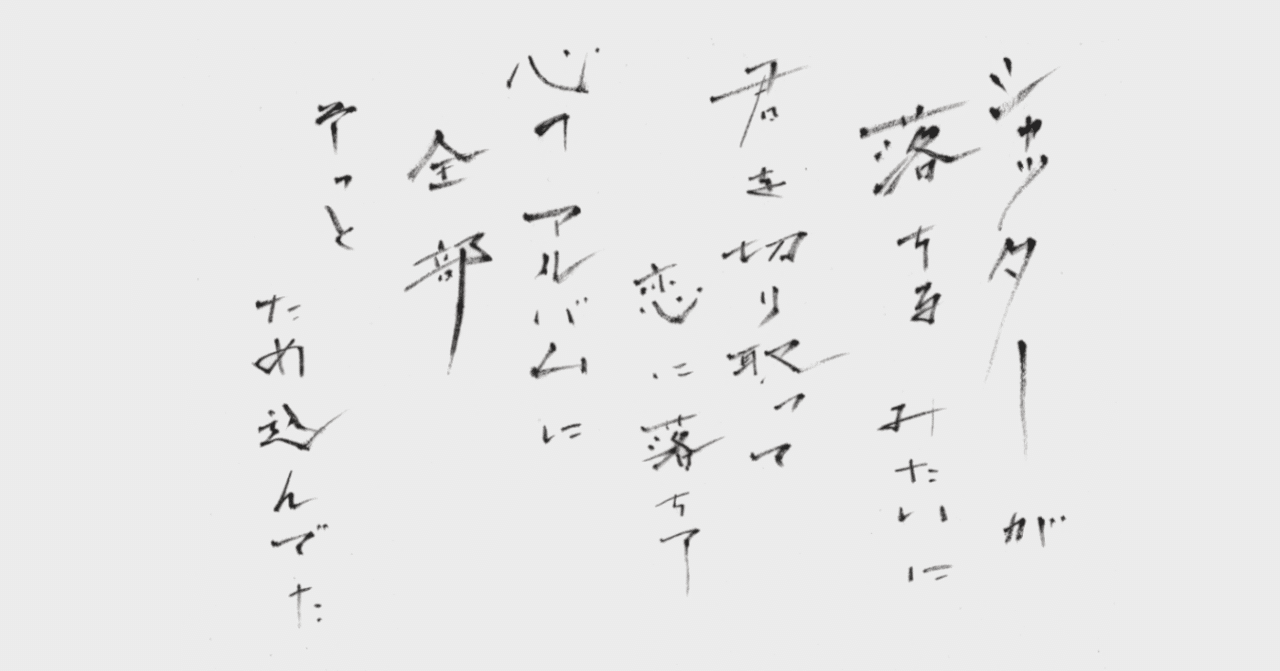 シャッターが
落ちる みたいに
君を切り取って
恋に落ちて
心の アルバムに
全部
そっと
ため込んでた